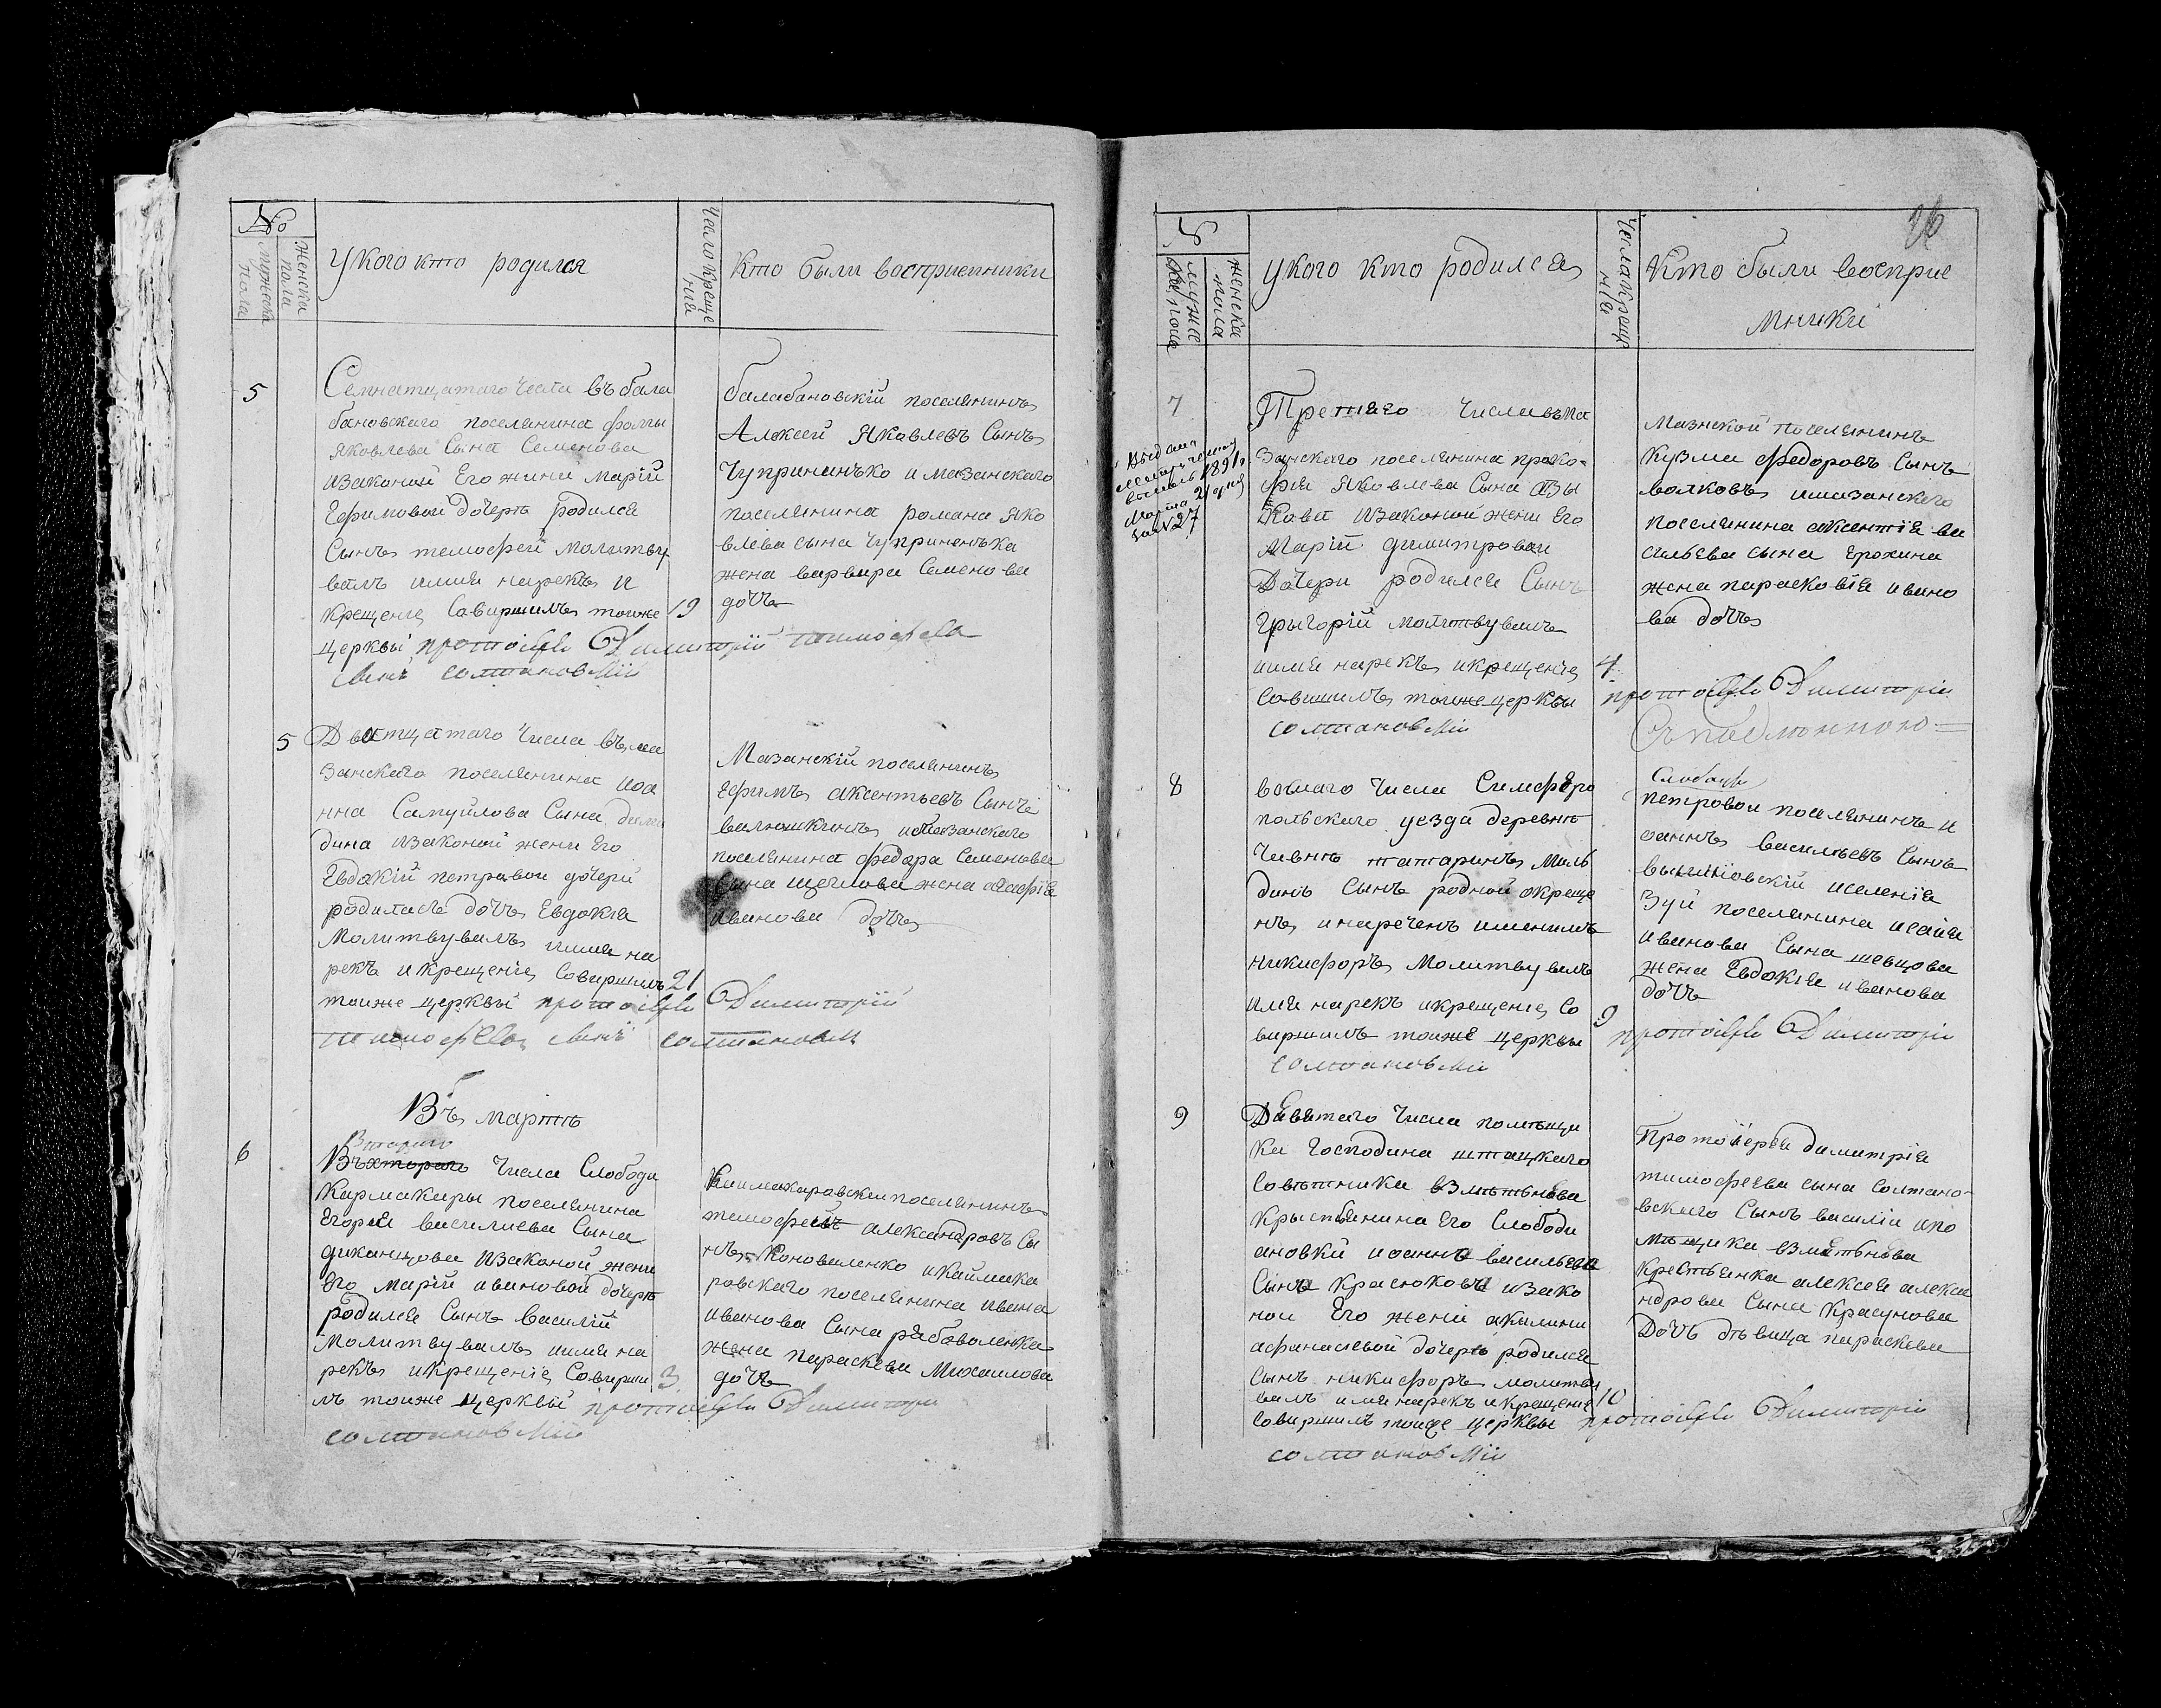 №
мужеска пола
женска пола
У кого кто родился
Число креще
ния
Кто были восприемники
5
Семнатцатаго Числа въ бала
бановскаго поселянина фомы
Яковлева Сына Семенова
изаконой Его жини Марій
Ефимовой дочерѣ родился
Сынъ темофей Молитву
валъ имия нарекъ и
крещение Совиршилъ тоиже
19
церквы протоіерей Димитрій тимофеев
Сынъ солтановскій
балабановскій поселянинъ
Алоксей Яковлевъ Сынъ
Чупринънько и мазанскаго
поселянина романа Яко
влева сына Чуприненька
жена варвара Семенова
дочъ
5
Двատцатаго Числа въ ма
занскаго поселянина иоа
нна Самуйлова Сына
дина изаконой жени Его
Евдокій петравои дочери
родиласъ дочъ Евдокия
Молитвувалъ имия на
рекъ и крещение Совиршилъ
21
тоиже церквы протоіерей Димитрій
тимофеев Сынъ солтановск
Мазанскій поселянинъ
Ефимъ аксентьевъ Сынъ
валюшкинъ и мазанскаго
поселянина федора Семенова
Сына Щеглова жена агафія
иванова дочъ
Въ мартѣ
6
Втораго
Числа Слободи
Кармакчры поселянина
Егория василиева Сына
диканцова изаконой жени
Его Марій ивановой дочерѣ
родился Сынъ василій
Молитвувалъ имия на
рекъ и крещение Совирши
3
лъ тоиже церквы протоіерей Димитри
солтановскій
поселянинъ
темофей александровъ Сы
нъ Коноваленко и каймака
ровскаго поселянина ивана
иванова Сына рябоволенка
жена параскева Михаилова
дочъ
26
№
мужес
ка пола
женска
пола
у кого кто родился
Числа креще
ния
Кто были восприе
мники
7
Выдана
1891
Марта 21 дня
за №27
Третяго Числа въ ма
занскаго поселянина проко=
фия Яковлева Сына
изаконой жени Его
Марій димитровои
Дочери родился Сынъ
Григорій молитвувалъ
имия нарекъ и крещение
4
Совишилъ тоиже церквы протоіерей Димитрій
солтановскій
Мазнской поселянинъ
Кузма федоровъ Сынъ
волковъ и мазанскаго
поселянина аксентія ва
сильева сына Ерохина
жена парасковія ивано
ва дочъ
8
восмаго Числа Симферо
польскаго уезда деревнѣ
татаринъ
Сынъ родной окреще
нъ и нареченъ именимъ
никифоръ Молитвувалъ
имя нарекъ и крещение Со
9
виршилъ тоиже церквы протоіерей Димитри
солтановскій
Слободы
петровои поселянинъ и
оаннъ васильевъ Сынъ
и селения
Зуи поселянина исайя
иванова Сына шевцова
жена Евдокия иванова
дочъ
9
Дивятаго Числа помѣщи
ка Господина штацкаго
Совѣтника взмѣтьнева
Крыстьянина Его Слободи
ановки иоанна васильева
Сына Красюкова изако
нои Его жені акилини
афанасиевой дочерѣ родился
Сынъ никифоръ молитву
валъ имя нарекъ и крещение
10
совиршилъ тоиже церквы протоіерей Димитрій
солтановскій
Протоіерея димитрія
тимофеева сына солтано-
вскаго Сынъ василій и по
мѣщика взмѣтьнева
Крестьянка алексея алекса
ндрова Сына Красунова
Дочъ дѣвица параскева